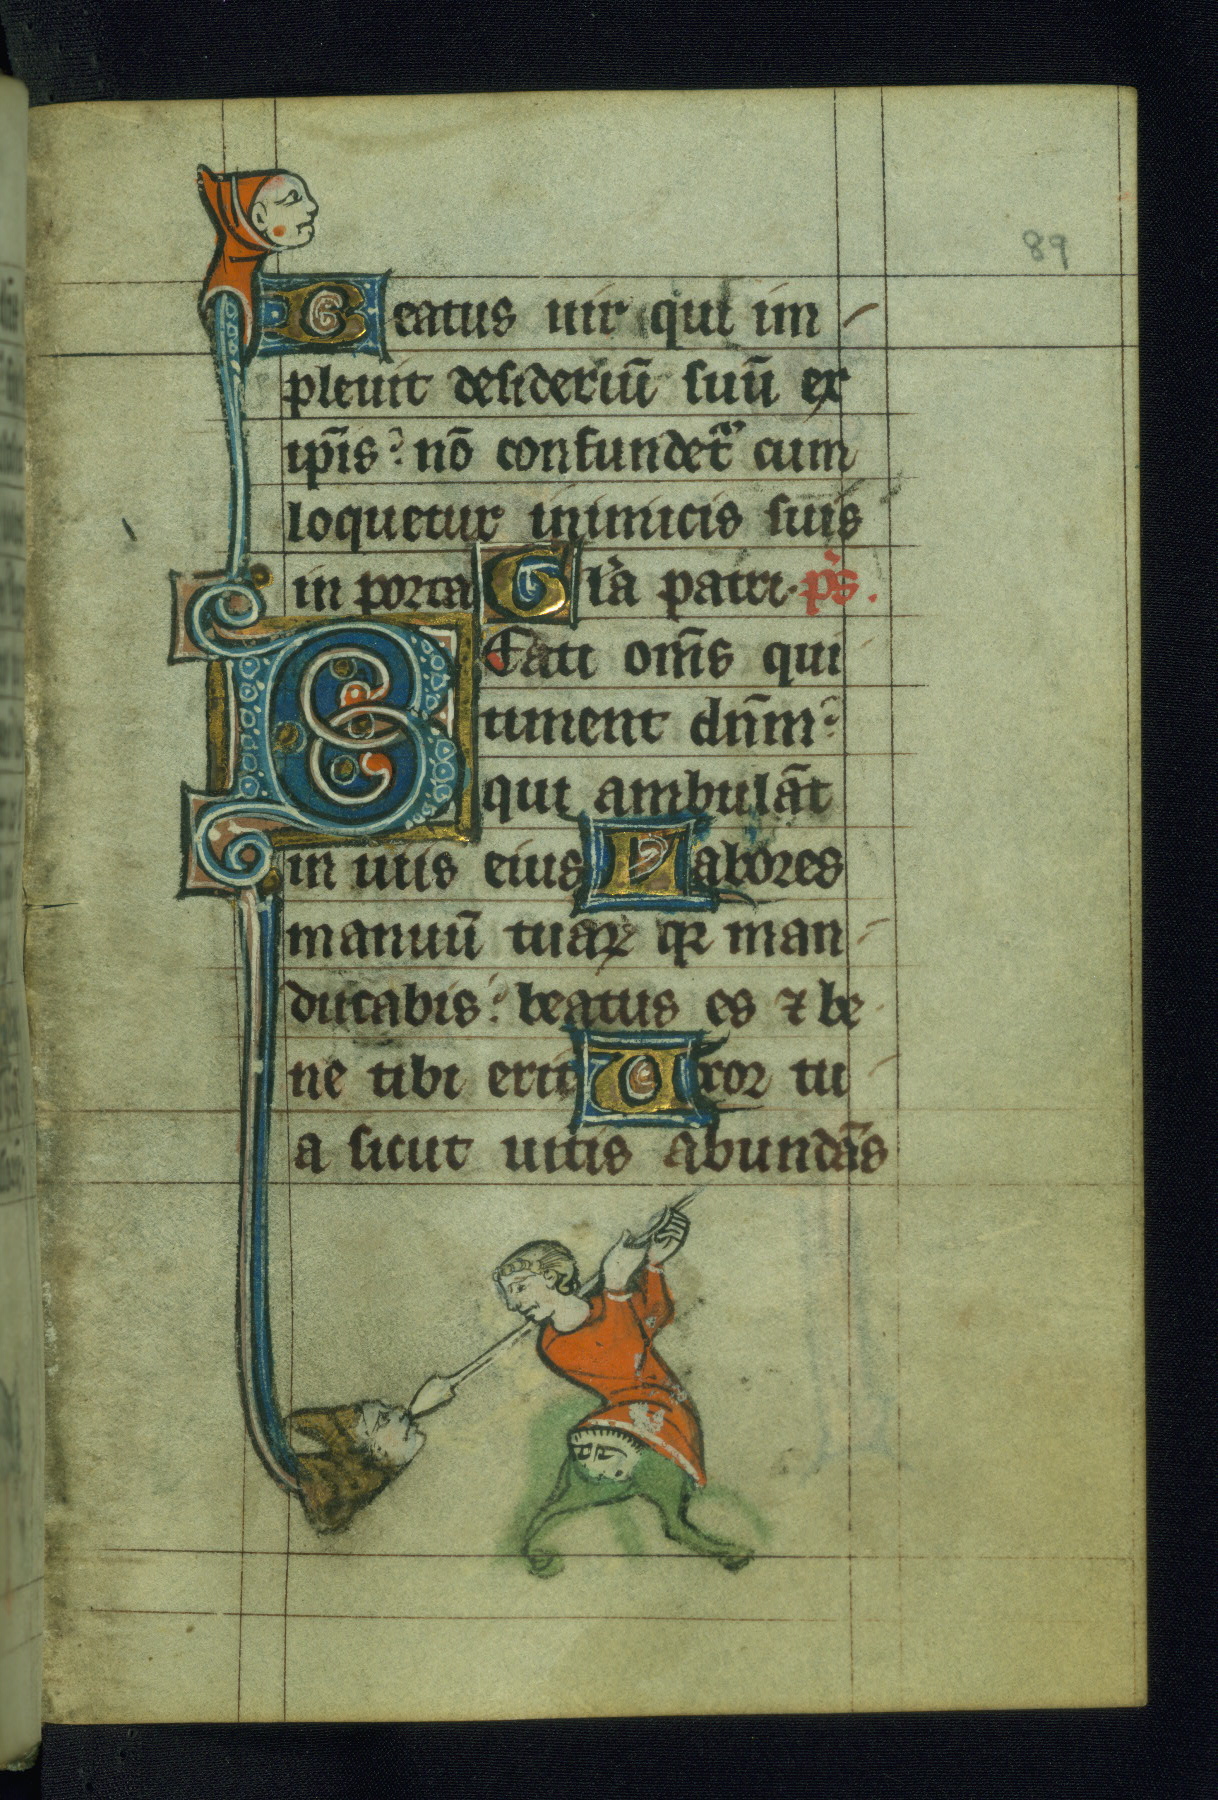 89
Beatus uir qui im
pleuit desideriū suū ex
ip̄is: nō confundet᷑ cum
loquetur inimicis suis
in porta Gl'a patri. ps.
Beati om̄s qui
timent dn̄m:
qui ambulāt
in uiis eius Labores
manuū tuaꝝ qꝛ man
ducabis: beatus es ⁊ be
ne tibi erit Uxor tu
a sicut uitis abundās